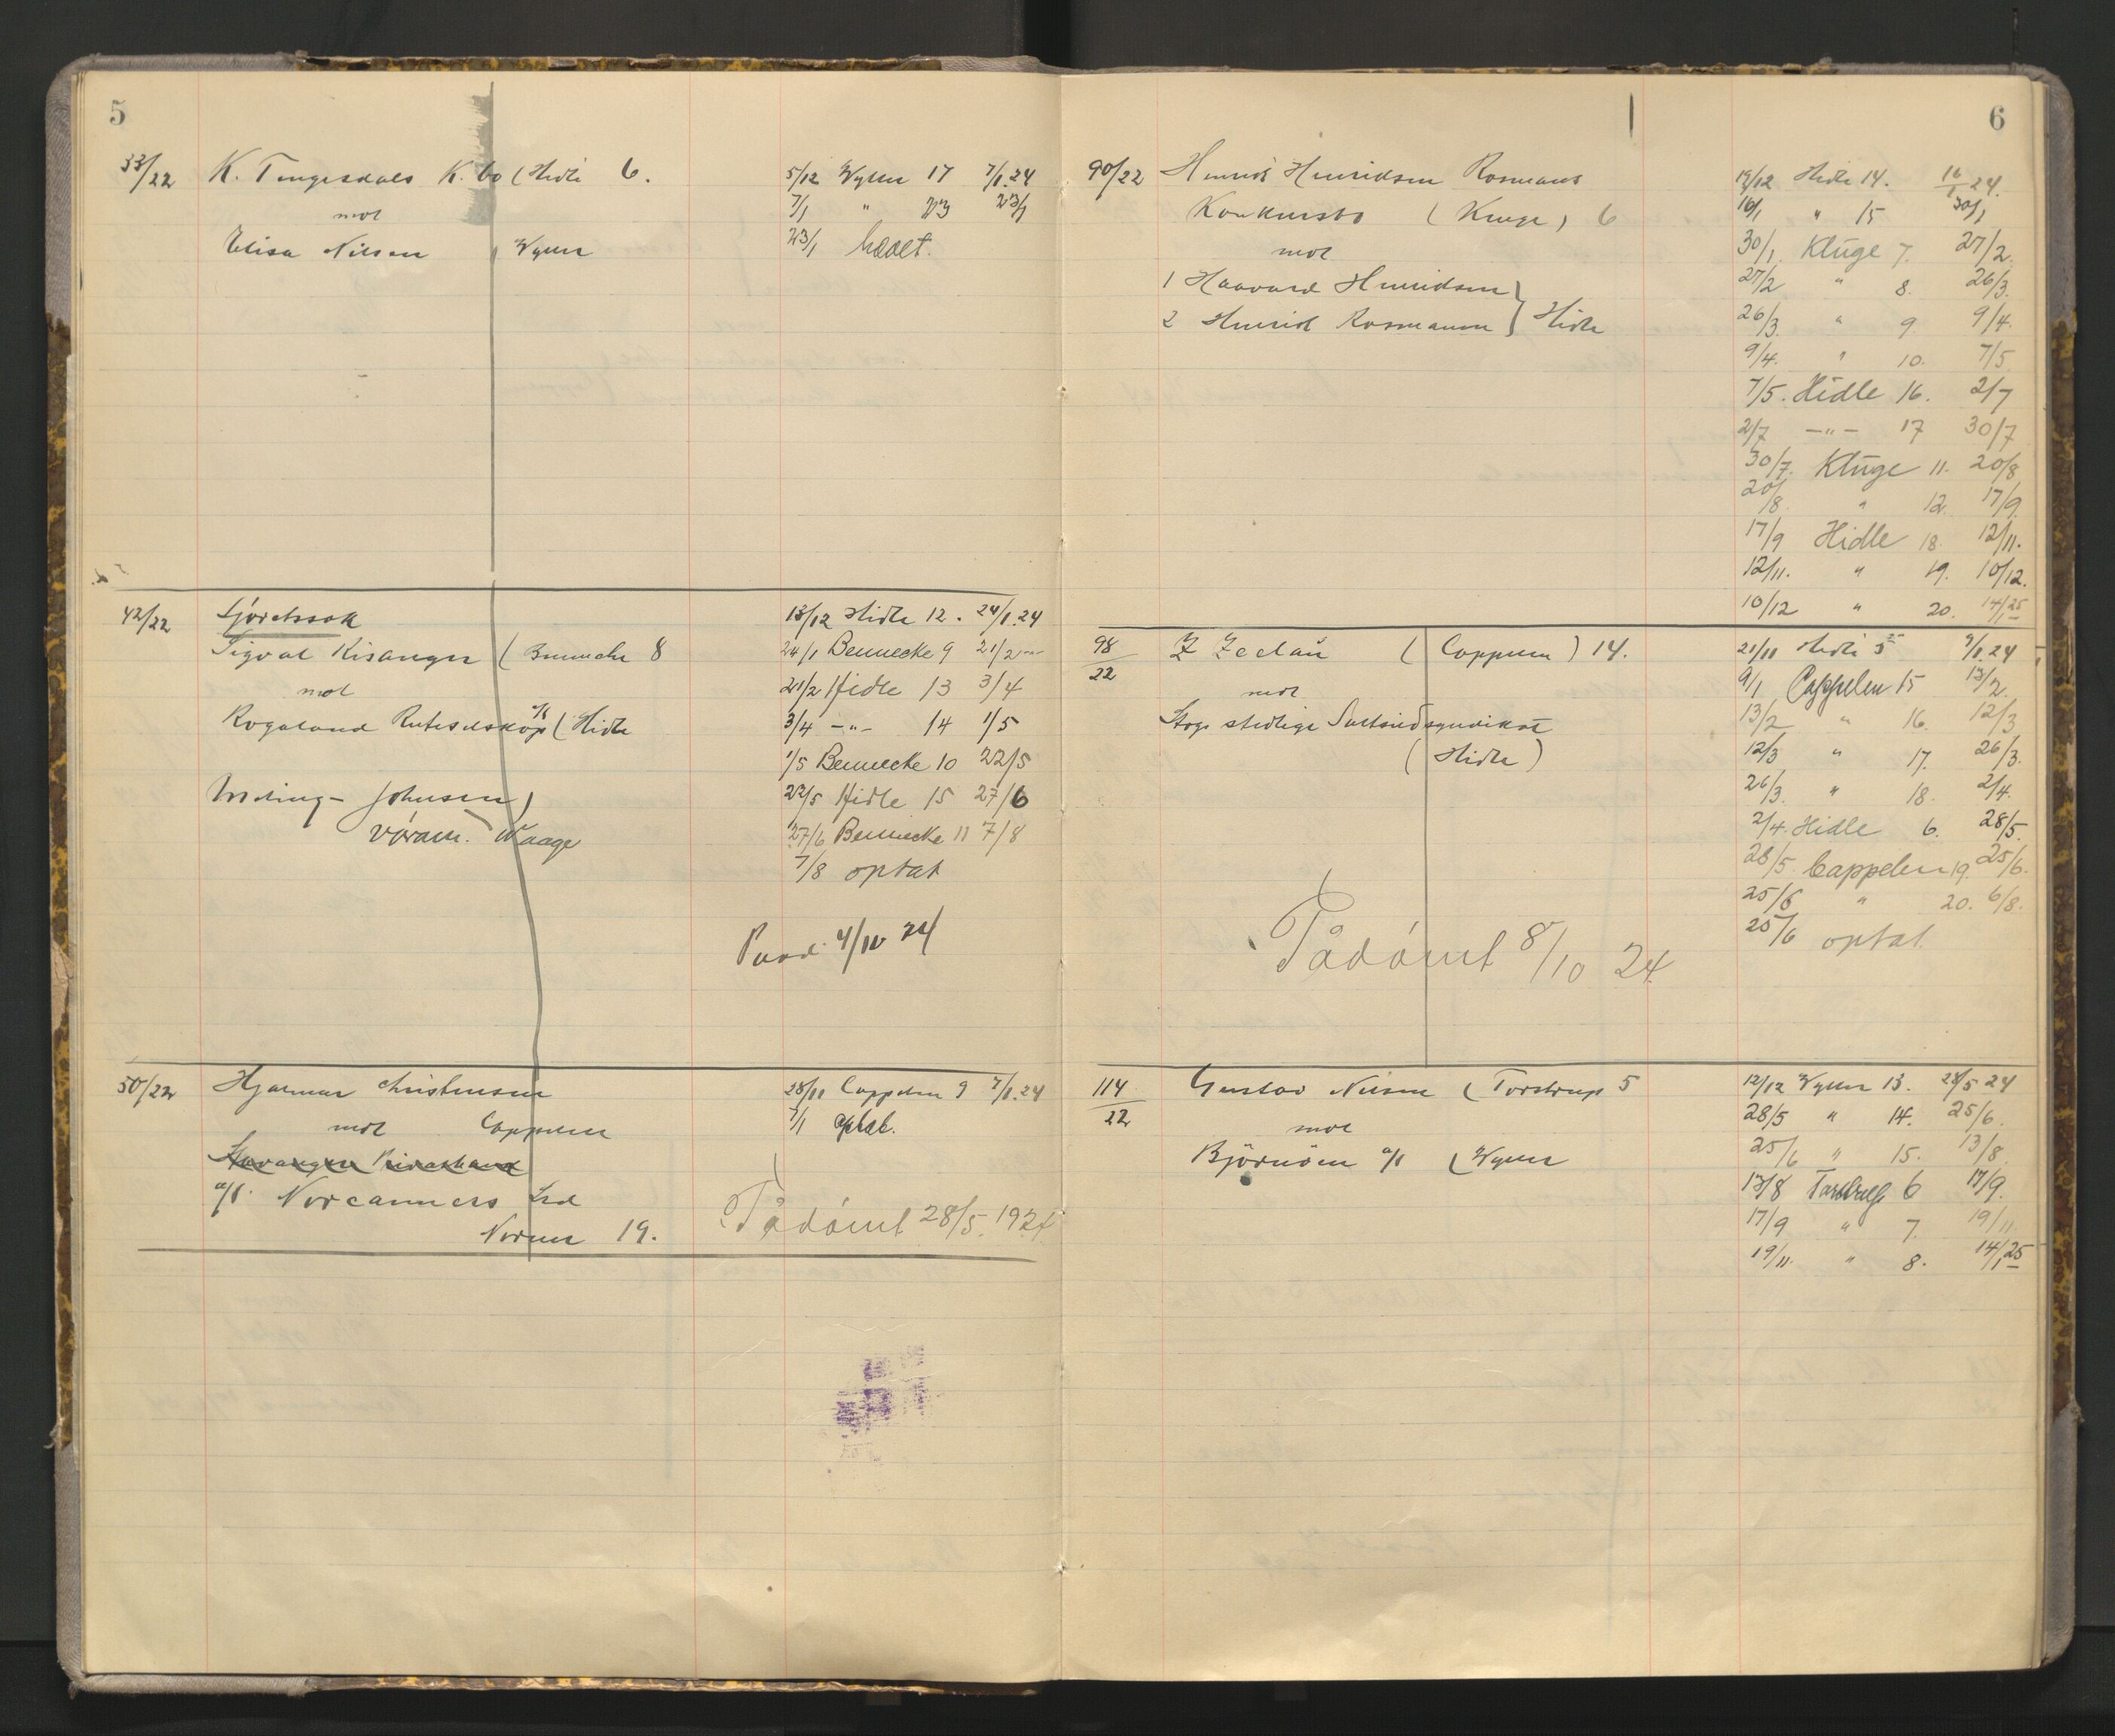 5
33/22 K. Tengesdals K. bo (Hidle 6. 5/12 Wyller 17 7/1.24
mot 7/1 " 23 23/1
Elisa Nilsen (Wyller 23/1 hævet.
42/22 Sjøretssak 13/12 Hidle 12. 24/1.24
Sigval Risanger (Bennecke 8 24/1 Bennecke 9 21/2
mot 21/2 Hidle 13 3/4
Rogaland Ruteselskap a/s (Hidle 3/4 -"- 14 1/5
1/5 Bennecke 10 22/5
Meling- Johnsen) 22/5 Hidle 15 27/6
Waage 27/6 Bennecke 11 7/8
7/8 optat
Paad. 4/10 24
50/22 Hjalmar Christensen 28/11 Cappelen 9 7/1.24
mot Cappelen 7/1 optat.
Stavanger Privatbank
a/s. Norcanners Ltd
Norem 19. Pådømt 28/5. 1924
6
90/22 Henrik Henriksen Rosmans 19/12 Hidle 14. 16/1 24.
Konkursbo (Kluge) 6 16/1 " 15 30/1
mot 30/1. Kluge 7. 27/2.
1 Haavard Henriksen 27/2 " 8. 26/3.
2 Henrik Rosmann } Hidle 26/3. " 9. 9/4.
9/4. " 10. 7/5
7/5. Hidle 16. 2/7
2/7 -"- 17 30/7
30/7. Kluge 11. 20/8
20/8. " 12. 17/9.
17/9 Hidle 18. 12/11.
12/11. " 19. 10/12.
10/12 " 20. 14/1 25
98/22 Z Zeclau (Cappelen) 14. 21/11 Hidle 5 9/1.24
mot 9/1 Cappelen 15 13/2.
13/2 " 16. 12/3
(Hidle) 12/3 " 17. 26/3.
26/3. " 18. 2/4.
2/4. Hidle 6. 28/5.
28/5. Cappelen 19. 25/6.
25/6 " 20. 6/8.
25/6 optat.
Pådømt 8/10 24.
114/22 Gustav Nilsen (Torstrup 5 12/12 Wyller 13. 28/5 24
mot 28/5 " 14. 25/6.
Björnöen a/s (Wyller 25/6 " 15. 13/8.
13/8 Torstrup 6 17/9.
17/9 " 7. 19/11.
19/11. " 8. 14/1 25